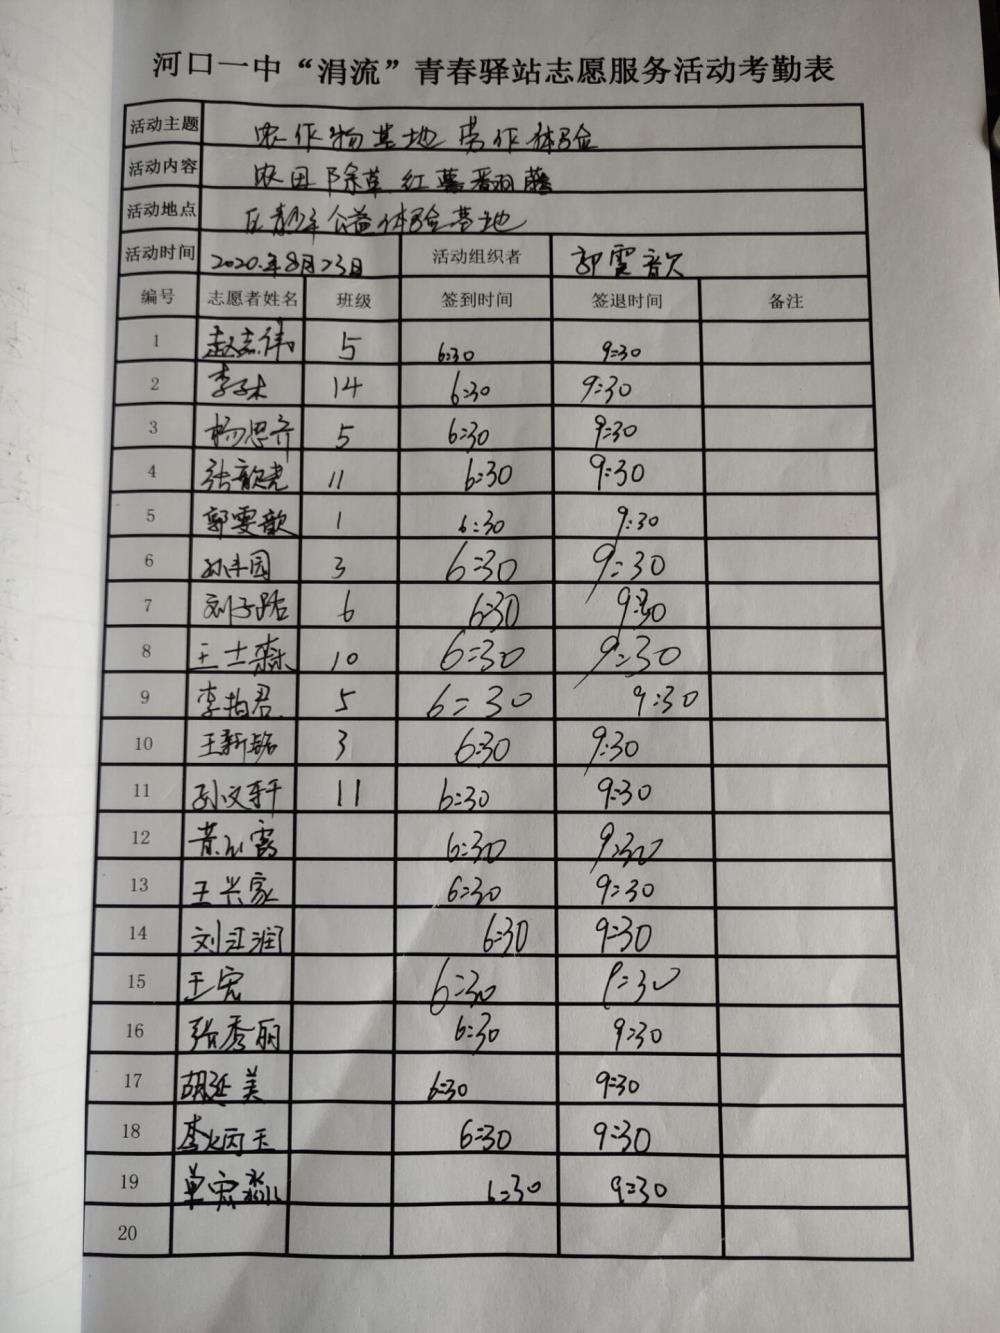 河口一中“涓流”青春驿站志愿服务活动考勤表
活动主题 农作物基地劳作体验
活动内容 农田除草 红薯翻藤
活动地点 区青少年公益体验基地
活动时间 2020.年8月23日 活动组织者 郭雯歆
编号 志愿者姓名 班级 签到时间 签退时间 备注
1 赵志伟 5 6:30 9:30
2 李子木 14 6:30 9:30
3 杨思齐 5 6:30 9:30
4 张歆尧 11 6:30 9:30
5 郭雯歆 1 6:30 9:30
6 孙丰园 3 6:30 9:30
7 刘子路 6 6:30 9:30
8 王士森 10 6:30 9:30
9 李柏君 5 6:30 9:30
10 王新铭 3 6:30 9:30
11 孙文轩 11 6:30 9:30
12 6:30 9:30
13 王兴家 6:30 9:30
14 刘江润 6:30 9:30
15 王宪 6:30 9:30
16 张秀丽 6:30 9:30
17 胡延美 6:30 9:30
18 李炳玉 6:30 9:30
19 单宏淼 6:30 9:30
20